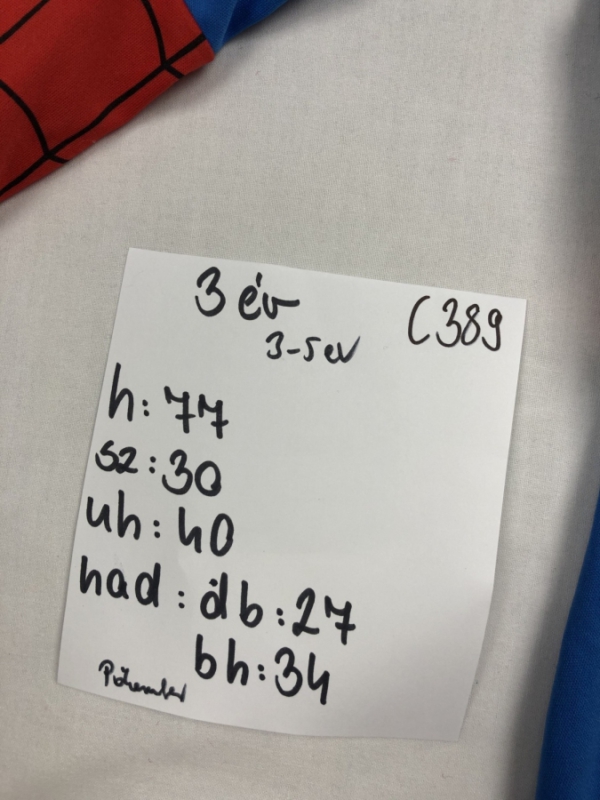 3 év
C389
3-5 ev
h: 77
sz: 30
uh: 40
nad: db: 27
bh: 34
Pókember